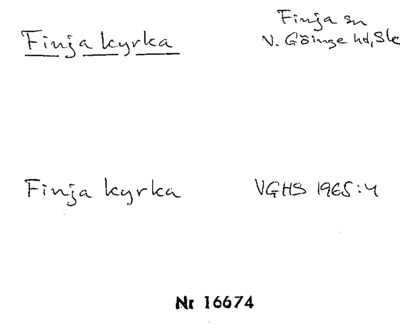 Finja kyrka
Finja sn
V. Göinge hd, Sk
Finja kyrka
VGHS 1965:4
Nr 16674